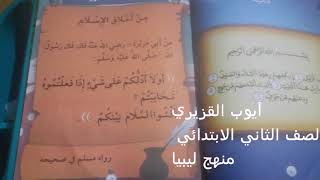 مِنْ أَخْلَاقِ الإِسْلَامِ
عَنْ أَبِي هُرَيْرَةَ - رَضِيَ اللهُ عَنْهُ - قَالَ: قَالَ رَسُولُ
اللهِ صَلَّى اللهُ عَلَيْهِ وَسَلَّمَ
((أَوَلَا أَدُلُّكُمْ عَلَى شَيْءٍ إِذَا فَعَلْتُمُوهُ
تَحَابَبْتُمْ؟
أَفْشُوا السَّلَامَ بَيْنَكُمْ))
رواه مسلم في صحيحه
بِسْمِ اللهِ الرَّحْمَنِ الرَّحِيمِ
أيوب القزيري
الصف الثاني الابتدائي
منهج ليبيا